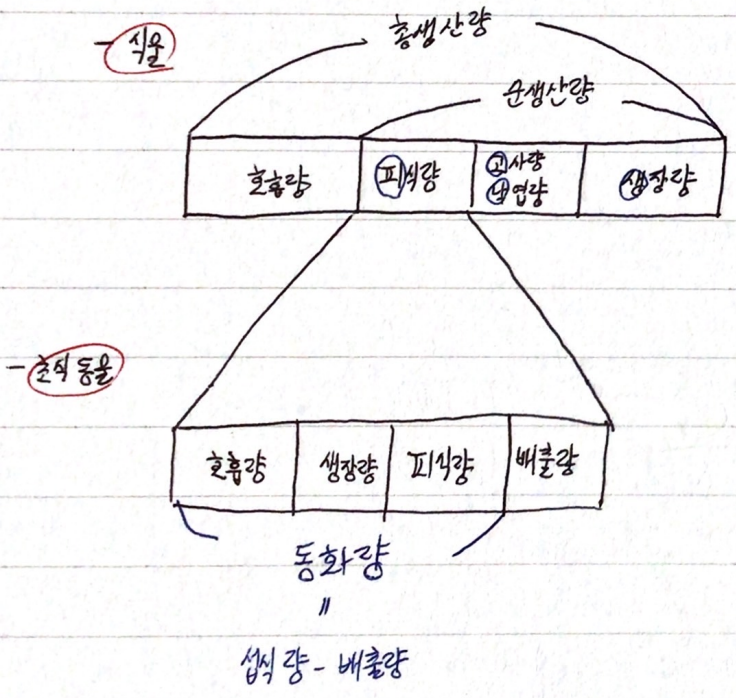 - 식물
총생산량
순생산량
호흡량
피식량
고사량
낙엽량
생장량
- 초식동물
호흡량
생장량
피식량
배출량
동화량
=
섭식량 - 배출량